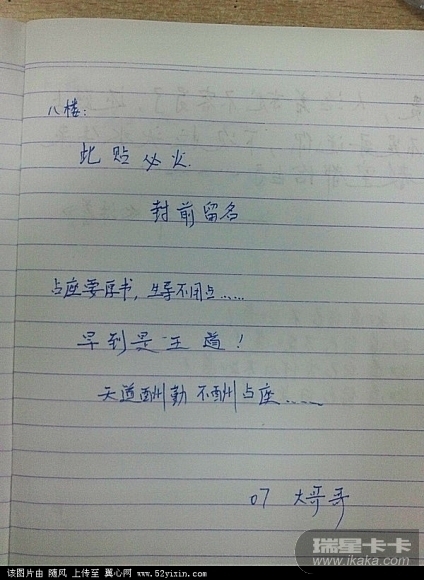 八楼:
此贴必火.
封前留名
占座要厚书,
早到是王道!
天道酬勤 不酬占座......
07 大哥哥
瑞星卡卡
www.ikaka.com
该图片由 随风 上传至 翼心网 www.52yixin.com